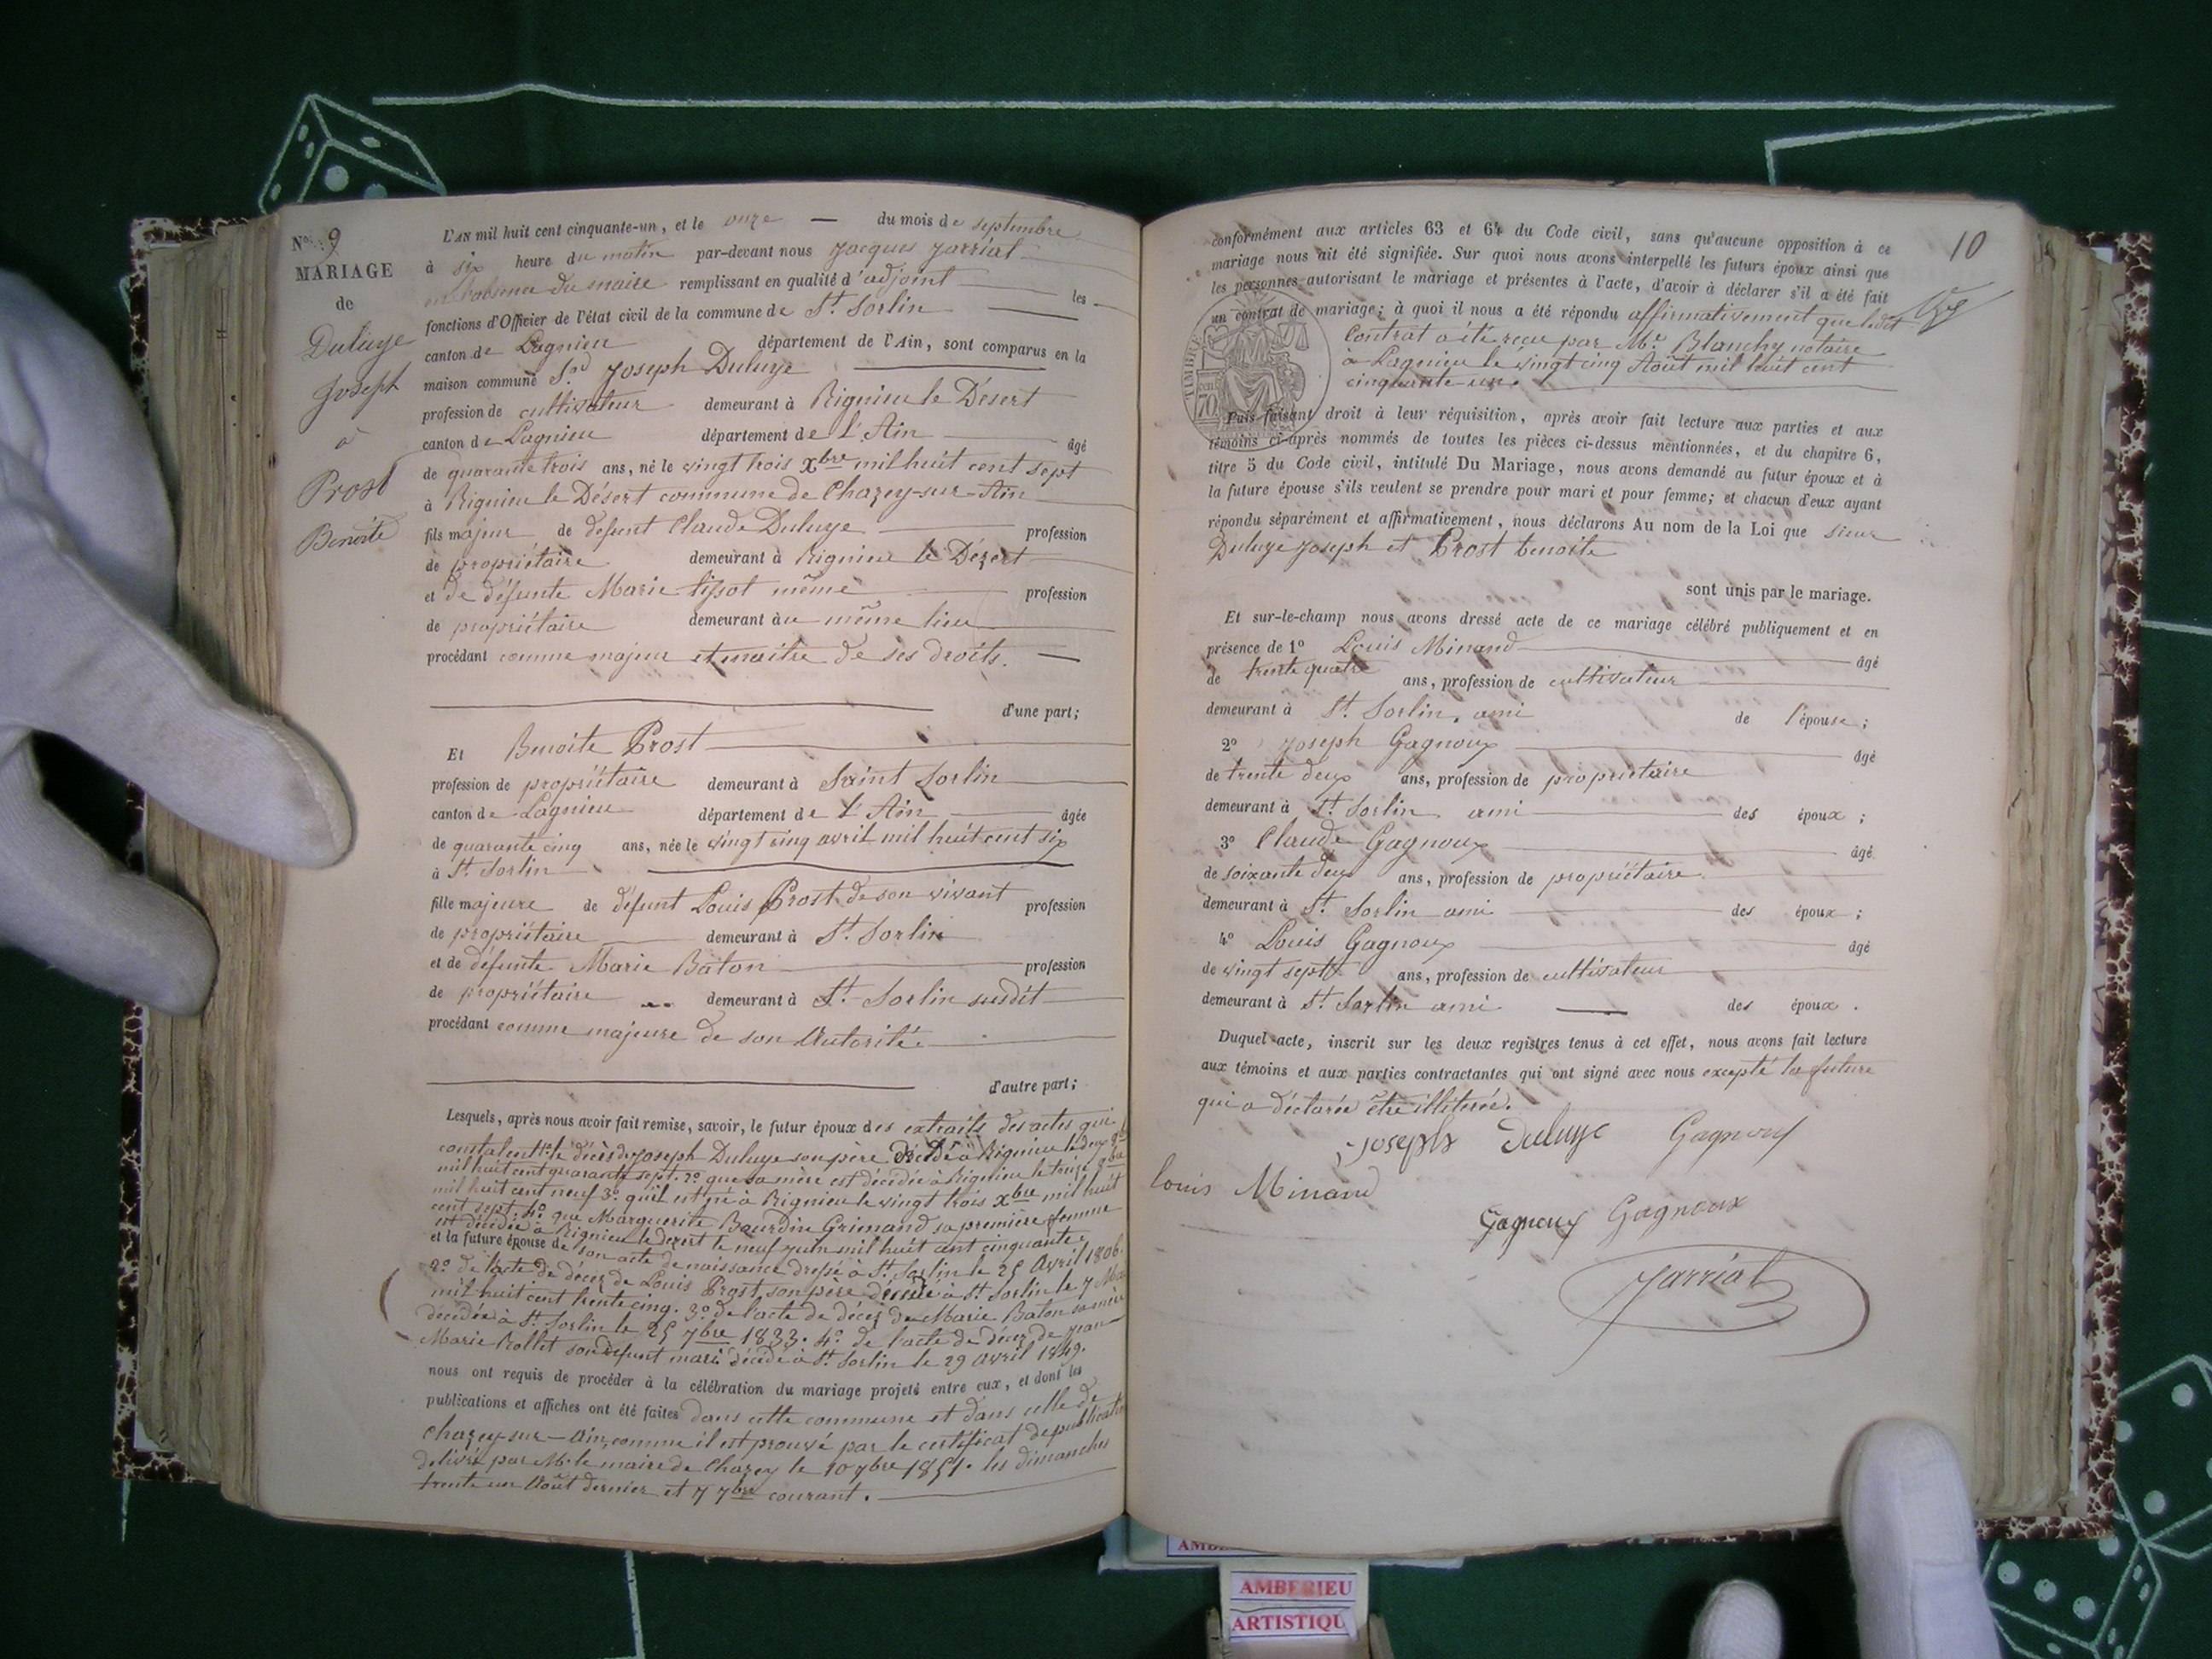 Nº 9
MARIAGE
de
Duluye
Joseph
à
Prost
Benoite
L'AN mil huit cent cinquante-un, et le onze — du mois de septembre
à six heure du matin par-devant nous Jacques Jarrial
en l'absence du maire remplissant en qualité d'adjoint les
fonctions d'Officier de l'état civil de la commune de St. Sorlin
canton de Lagnieu département de l'Ain, sont comparus en la
maison commune Sr. Joseph Duluye
profession de cultivateur demeurant à Rignieu le Désert
canton de Lagnieu département de l'Ain âgé
de quarante trois ans, né le vingt trois Xbre mil huit cent sept
à Rignieu le Désert commune de Chazey-sur-Ain
fils majeur de défunt Claude Duluye profession
de propriétaire demeurant à Rignieu le Dézert
et de défunte Marie tissot même profession
de propriétaire demeurant au même lieu
procédant comme majeur et maitre de ses droits. —
d'une part;
Et Benoite Prost
profession de propriétaire demeurant à Saint Sorlin
canton de Lagnieu département de l'Ain âgée
de quarante cinq ans, née le vingt cinq avril mil huit cent six
à St. Sorlin
fille majeure de défunt Louis Prost de son vivant profession
de propriétaire demeurant à St. Sorlin
et de défunte Marie Baton profession
de propriétaire demeurant à St. Sorlin susdit
procédant comme majeure de son Autorité.
d'autre part;
Lesquels, après nous avoir fait remise, savoir, le futur époux des extraits des actes qui
constatent 1º le décès de Joseph Duluye son père décédé à Rignieu le deux
mil huit cent quarante sept. 2º que sa mère est décédée à Rignieu le treize
mil huit cent neuf 3º qu'il est né à Rignieu le vingt trois Xbre mil huit
cent sept. 4º que Marguerite Bourdin Grimand sa première femme
est décédée à Rignieu le dezert le neuf juin mil huit cent cinquante.
et la future épouse de son acte de naissance dressé à St. Sorlin le 25 Avril 1806.
2º de l'acte de décès de Louis Prost, son père décédé à St Sorlin le 7 Mai
mil huit cent trente cinq. 3º de l'acte de décès de Marie Baton sa mère
décédée à St. Sorlin le 25 7bre 1833. 4º de l'acte de décès de Jean
Marie Rollet son défunt mari décédé à St. Sorlin le 29 Avril 1849.
nous ont requis de procéder à la célébration du mariage projeté entre eux, et dont les
publications et affiches ont été faites dans cette commune et dans celle de
Chazey-sur-Ain, comme il est prouvé par le certificat de publication
délivré par Mr. le maire de Chazey le 10 7bre 1851. les dimanches
trente un Août dernier et 7 7bre courant.
10
conformément aux articles 63 et 64 du Code civil, sans qu'aucune opposition à ce
mariage nous ait été signifiée. Sur quoi nous avons interpellé les futurs époux ainsi que
les personnes autorisant le mariage et présentes à l'acte, d'avoir à déclarer s'il a été fait
un contrat de mariage; à quoi il nous a été répondu affirmativement que ledit
Contrat a été reçu par Me. Blanchy notaire
à Lagnieu le vingt cinq Août mil huit cent
cinquante un.
TIMBRE
70
Puis faisant droit à leur réquisition, après avoir fait lecture aux parties et aux
témoins ci-après nommés de toutes les pièces ci-dessus mentionnées, et du chapitre 6,
titre 5 du Code civil, intitulé Du Mariage, nous avons demandé au futur époux et à
la future épouse s'ils veulent se prendre pour mari et pour femme; et chacun d'eux ayant
répondu séparément et affirmativement, nous déclarons Au nom de la Loi que sieur
Duluye Joseph et Prost benoite
sont unis par le mariage.
Et sur-le-champ nous avons dressé acte de ce mariage célébré publiquement et en
présence de 1º Louis Minand âgé
de trente quatre ans, profession de cultivateur
demeurant à St. Sorlin, ami de l'épouse;
2º Joseph Gagnoux âgé
de trente deux ans, profession de propriétaire
demeurant à St. Sorlin ami des époux;
3º Claude Gagnoux âgé
de soixante deux ans, profession de propriétaire
demeurant à St. Sorlin ami des époux;
4º Louis Gagnoux âgé
de vingt sept ans, profession de cultivateur
demeurant à St. Sorlin ami des époux.
Duquel acte, inscrit sur les deux registres tenus à cet effet, nous avons fait lecture
aux témoins et aux parties contractantes qui ont signé avec nous excepté la future
qui a déclarée être illiterée.
Joseph Duluye Gagnoux
louis Minand
Gagnoux Gagnoux
Jarrial
AMBERIEU
ARTISTIQU